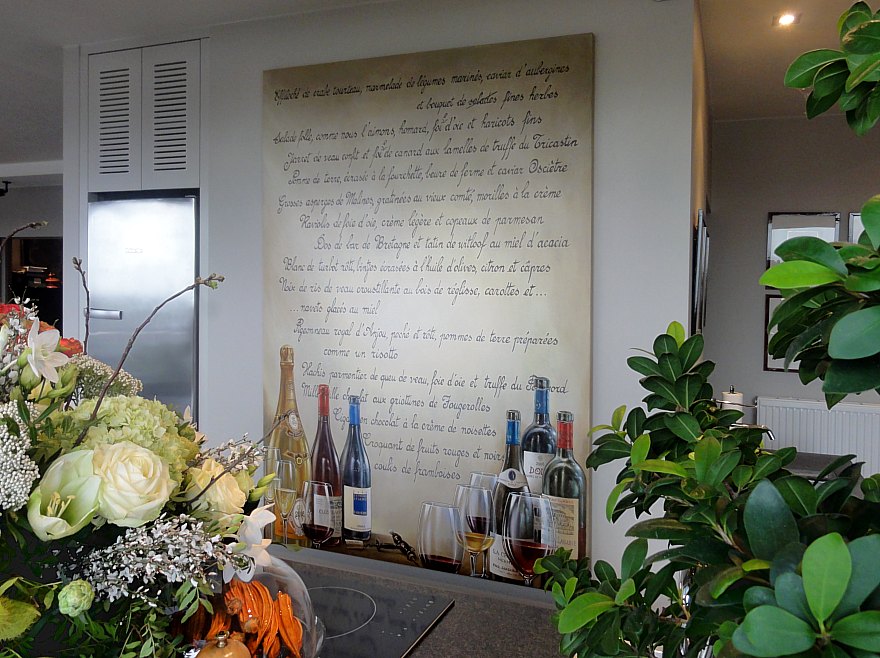 Effiloché de crabe tourteau, marmelade de légumes marinés, caviar d'aubergines
et bouquet de salades fines herbes
Salade folle, comme nous l'aimons, homard, foie d'oie et haricots fins
Jarret de veau confit et foie de canard aux lamelles de truffe du Tricastin
Pomme de terre, écrasée à la fourchette, beurre de ferme et caviar Osciètre
Grosses asperges de Malines, gratinées au vieux comté, morilles à la crème
Raviolis de foie d'oie, crème légère et copeaux de parmesan
Dos de bar de Bretagne et tatin de witloof au miel d'acacia
Blanc de turbot rôti, écrasées à l'huile d'olives, citron et câpres
Noix de ris de veau croustillante au bois de réglisse, carottes et...
...navets glacés au miel
Pigeonneau royal d'Anjou, poché et rôti, pommes de terre préparées
comme un risotto
Hachis parmentier de queu de veau, foie d'oie et truffe du
chocolat aux griottines de Fougerolles
chocolat à la crème de noisettes
Croquant de fruits rouges et noirs
coulis de framboises